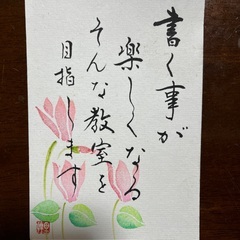 書く事が
楽しくなる
そんな教室を
目指します